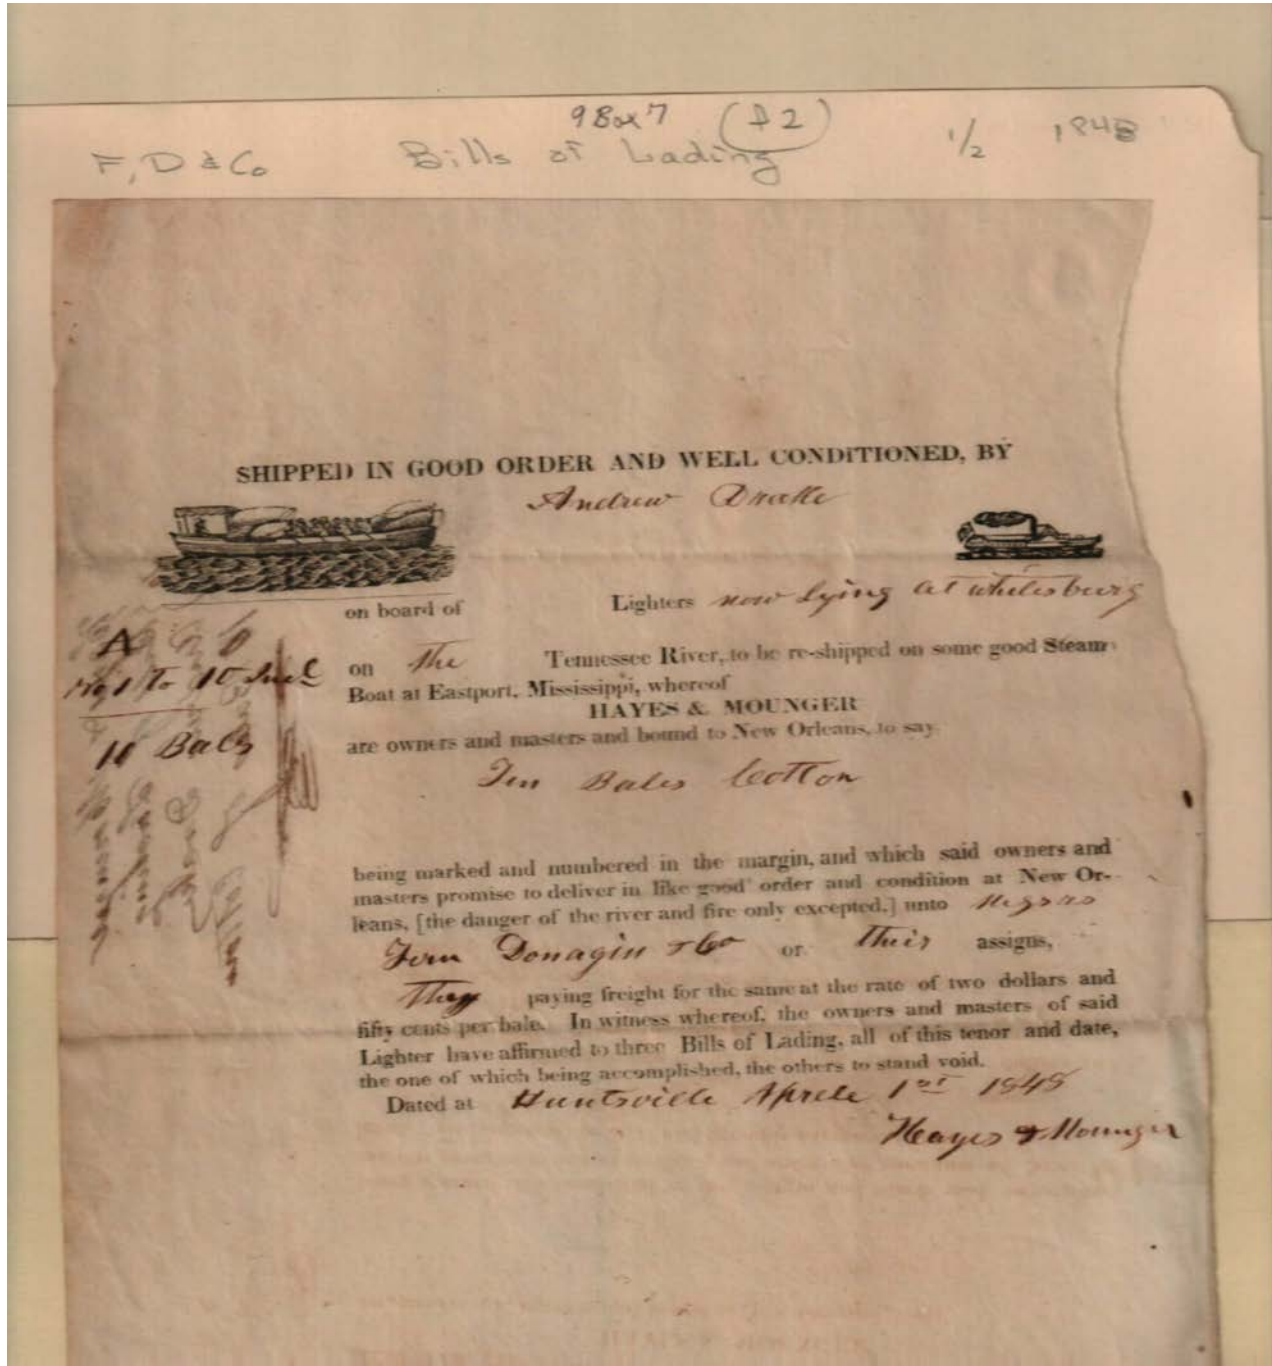 9 Box 7 (f2)
F, D & Co Bills of Lading 1/2 1848
SHIPPED IN GOOD ORDER AND WELL CONDITIONED, BY
Andrew Drake
on board of Lighters now Lying at Whitesburg
on the Tennessee River, to be re-shipped on some good Steam
Boat at Eastport, Mississippi, whereof
HAYES & MOUNGER
are owners and masters and bound to New Orleans, to say
Ten Bales Cotton
A
No 1 To 10
10 Bals
being marked and numbered in the margin, and which said owners and
masters promise to deliver in like good order and condition at New Or-
leans, [the danger of the river and fire only excepted,] unto
Fern Donagin & Co or their assigns,
They paying freight for the same at the rate of two dollars and
fifty cents per bale. In witness whereof, the owners and masters of said
Lighter have affirmed to three Bills of Lading, all of this tenor and date,
the one of which being accomplished, the others to stand void.
Dated at Huntsville Aprile 1st 1848
Hayes & Mounger